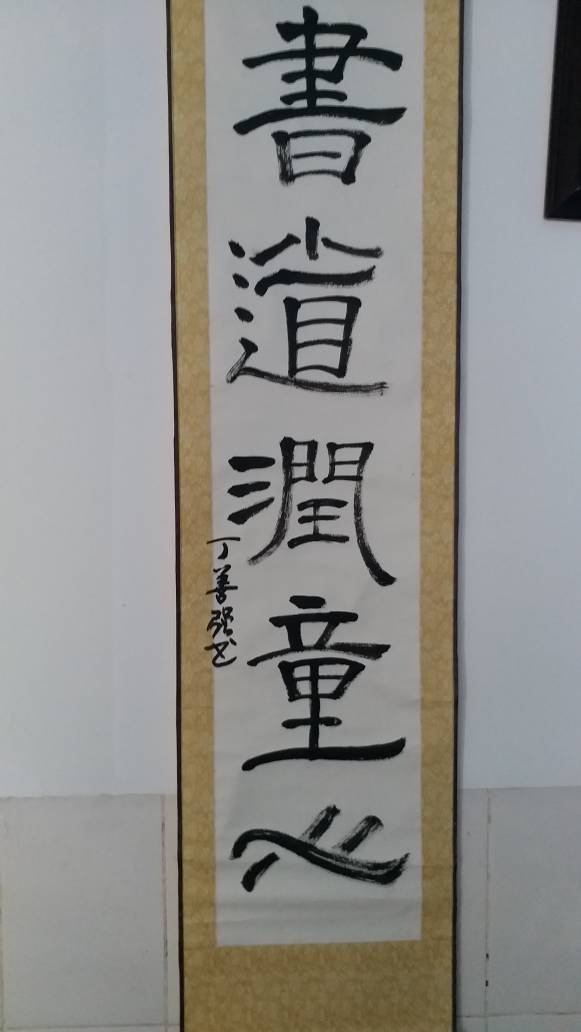 書道潤童心
丁善强书